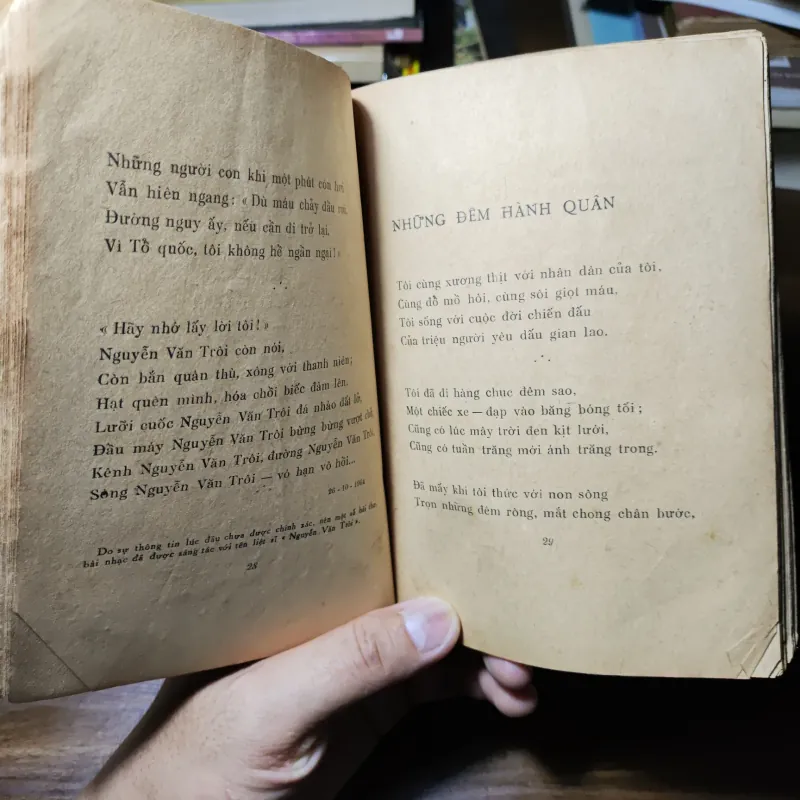 Những người con khi một phút còn
Vẫn hiên ngang: « Dù máu chảy đầu rơi,
Đường nguy ấy, nếu cần đi trở lại,
Vì Tổ quốc, tôi không hề ngần ngại! »
« Hãy nhớ lấy lời tôi! »
Nguyễn Văn Trôi còn nói,
Còn bắn quân thù, xông với thanh niên;
Hạt quên mình, hóa chồi biếc đâm lên,
Lưỡi cuốc Nguyễn Văn Trôi đã nhào đất ải,
Đầu máy Nguyễn Văn Trôi bừng bừng vượt
Kênh Nguyễn Văn Trôi, đường Nguyễn Văn Trôi,
Sông Nguyễn Văn Trôi — vô hạn vô hồi...
26-10-1964
Do sự thông tin lúc đầu chưa được chính xác, nên một số bài thơ,
bài nhạc đã được sáng tác với tên liệt sĩ « Nguyễn Văn Trôi ».
28
NHỮNG ĐÊM HÀNH QUÂN
Tôi cùng xương thịt với nhân dân của tôi,
Cùng đổ mồ hôi, cùng sôi giọt máu,
Tôi sống với cuộc đời chiến đấu
Của triệu người yêu dấu gian lao.
Tôi đã đi hàng chục đêm sao,
Một chiếc xe — đạp vào băng bóng tối;
Cũng có lúc mây trời đen kịt lưới,
Cũng có tuần trăng mới ánh trăng trong.
Đã mấy khi tôi thức với non sông
Trọn những đêm ròng, mắt chong chân bước,
29